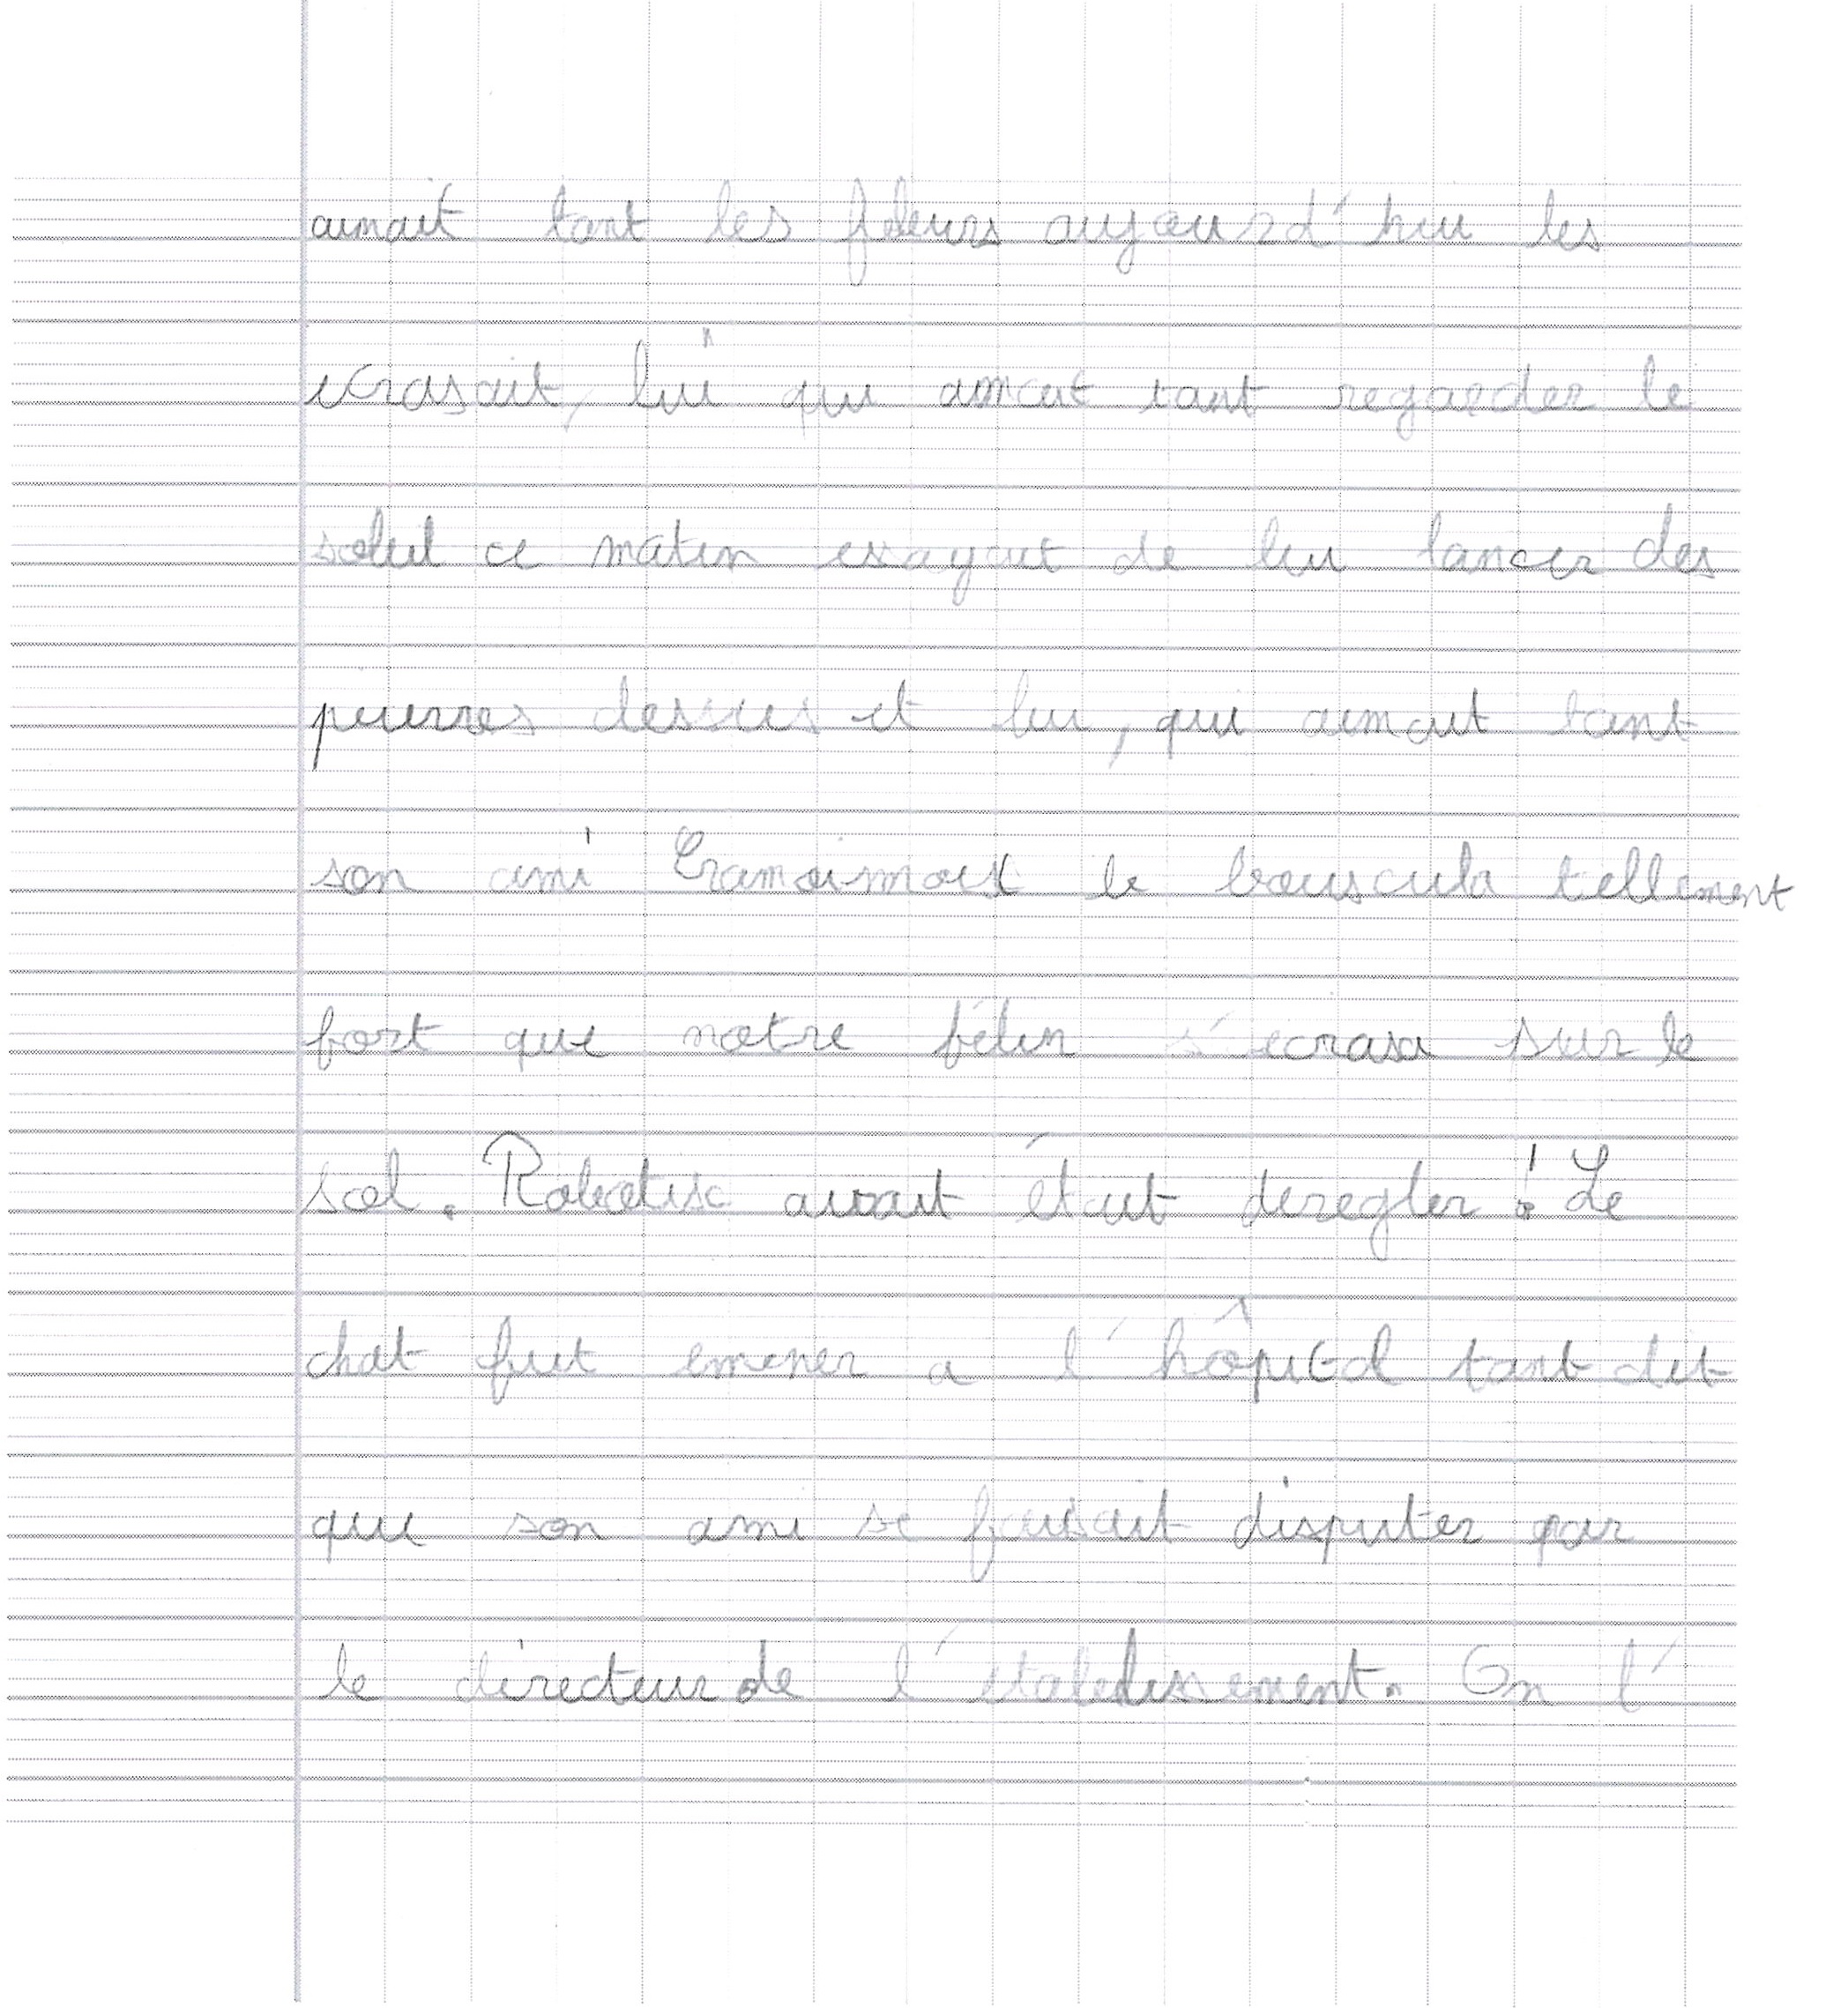 aimait tant les fleurs aujourd'hui les
écrasait, lui qui amait tant regarder le
soleil ce matin esayait de lui lancer des
pierres dessus et lui, qui aimait tant
son ami le bouscula tellement
fort que notre félin s'écrasa sur le
sol. Robotisc avait était deregler ! Le
chat fut emener a l'hôpital tant dit
que son ami se faisait disputer par
le directeur de l'établissement. On l'